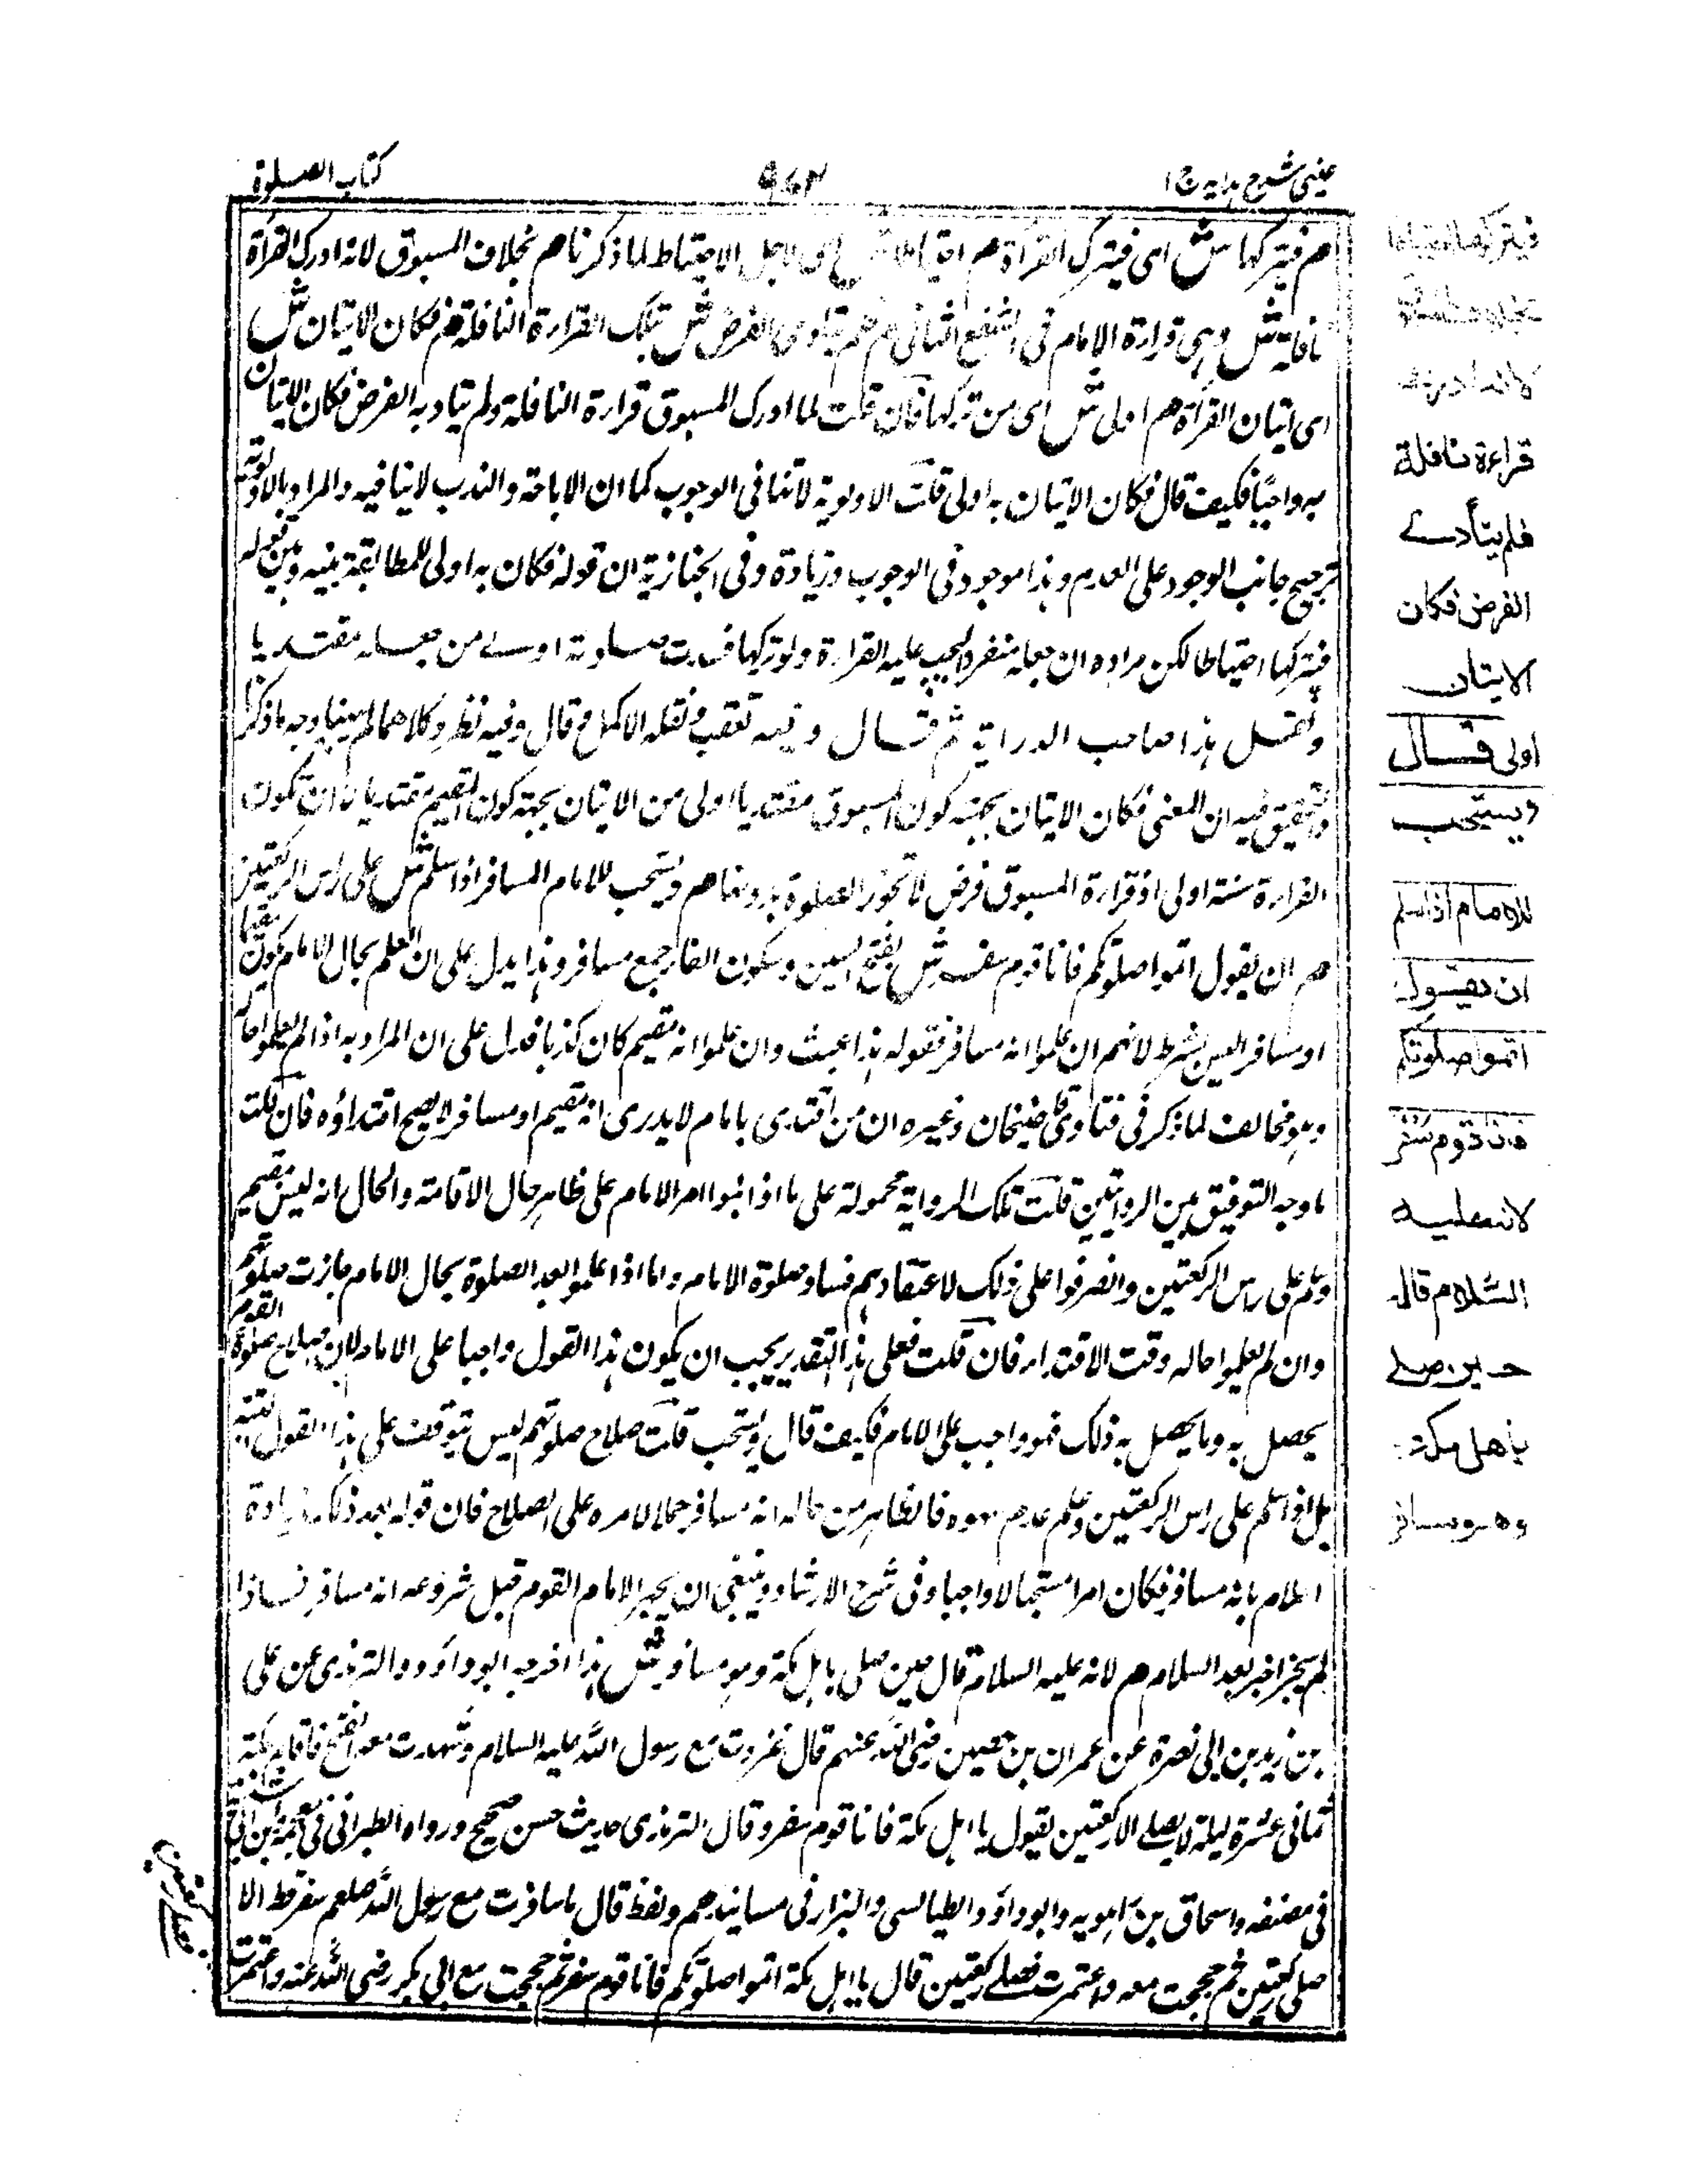 عینی شرح ہدایہ ج ۱
۹۷۲
کتاب الصلوة
م فیترکها ش ای فیترک القرأة م احتیاطا ش ای لاجل الاحتیاط لما ذکرنا م بخلاف المسبوق لانه ادرک القرأة
نافلة ش وہی قرارة الامام فی الشفع الثانی م فلم یتادی الفرض ش بتلک القرارة النافلة م فکان الاتیان ش
ای اتیان القرأة م اولی ش ای من ترکها فان قلت لما ادرک المسبوق قرارة النافلة ولم یتاد به الفرض فکان الاتیان
به واجبا فکیف قال فکان الاتیان به اولی قلت الاولویة لاتنافی الوجوب کما ان الاباحة والندب لاینافیه والمراد بالاولویة
ترجیح جانب الوجود علی العدم وہذا موجود فی الوجوب وزیادة وفی الخبازیة ان قوله فکان به اولی للمطابقة بینه وبین قوله
فیترکها احتیاطا لکن مراده ان جعله منفردا لیجب علیه القرارة ولو ترکها فسدت صلوته اولے من جعله مقتدیا
ونقل ہذا صاحب الدرایة ثم قال وفیه تعقب ونقله الاکمل ثم قال وفیه نظر وکلاهما لم یبینا وجه ما ذکرا
والتحقیق فیه ان المعنی فکان الاتیان بجهة کون المسبوق مقتدیا اولی من الاتیان بجهة کون المقیم مقتدیا لان تکون
القرارة سنة اولی اذ قرارة المسبوق فرض لا تجوز الصلوة بدونها م ویستحب للامام المسافر اذا سلم ش علی راس الرکعتین
م ان یقول اتموا صلوتکم فانا قوم سفر ش بفتح السین وسکون الفا جمع مسافر وہذا یدل علی ان العلم بحال الامام بکونه مقیما
او مسافرا لیس بشرط لانهم ان علموا انه مسافر فقوله ہذا عبث وان علموا انه مقیم کان کذبا فدل علی ان المراد به اذا لم یعلموا حاله
وہو مخالف لما ذکر فی فتاوی قاضیخان وغیره ان من اقتدی بامام لایدری انه مقیم او مسافر لایصح اقتداؤه فان قلت
ما وجه التوفیق بین الروایتین قلت تلک الروایة محمولة علی ما اذا بنوا امر الامام علی ظاہر حال الاقامة والحال انه لیس بمقیم
وسلم علی راس الرکعتین وانصرفوا علی ذلک لاعتقادہم فساد صلوة الامام واما اذا علموا بعد الصلوة بحال الامام جازت صلوتهم
وان لم یعلموا حاله وقت الاقتدار فان قلت فعلی ہذا التقدیر یجب ان یکون ہذا القول واجبا علی الامام لان صلاح صلوة القوم
یحصل به وما یحصل به ذلک فهو واجب علی الامام فکیف قال ویستحب قلت صلاح صلوتهم لیس یتوقف علی ہذا القول البتة
بل اذا سلم علی راس الرکعتین وعلم عدم سهوه فالظاہر من حاله انه مسافر حملا لامره علی الصلاح فان قوله بعد ذلک زیادة
اعلام بانه مسافر فکان امرا مستحبا لا واجبا وفی شرح الارشاد وینبغی ان یخبر الامام القوم قبل شروعه انه مسافر فاذا
لم یخبر اخبر بعد السلام م لانه علیه السلام قال حین صلی باہل مکة وہو مسافر ش ہذا اخرجه ابوداؤد والترمذی عن علی
بن زید بن ابی نضرة عن عمران بن حصین رضی الله عنهم قال غزوت مع رسول الله علیه السلام وشهدت معه الفتح فاقام بمکة
ثمانی عشرة لیلة لا یصلے الا رکعتین یقول یا اہل مکة فانا قوم سفر وقال الترمذی حدیث حسن صحیح ورواه الطبرانی فی معجمه وابن ابی شیبة
فی مصنفه واسحاق بن راہویه وابوداؤد الطیالسی والبزار فی مسانیدهم ولفظ قال ما سافرت مع رسول الله صلعم سفرا قط الا
صلی رکعتین ثم حججت معه واعتمرت فصلے رکعتین قال یا اہل مکة اتموا صلوتکم فانا قوم سفر ثم حججت مع ابی بکر رضی الله عنه واعتمرت
فصلے رکعتین
فیترکها احتیاطا
بخلاف المسبوق
لانه ادرک
قراءة نافلة
فلم یتأدے
الفرض فکان
الاتیان
اولی قال
ویستحب
للامام اذا سلم
ان یقول
اتموا صلوتکم
فانا قوم سفر
لانه علیه
السلام قال
حین صلے
باهل مکة
وهو مسافر